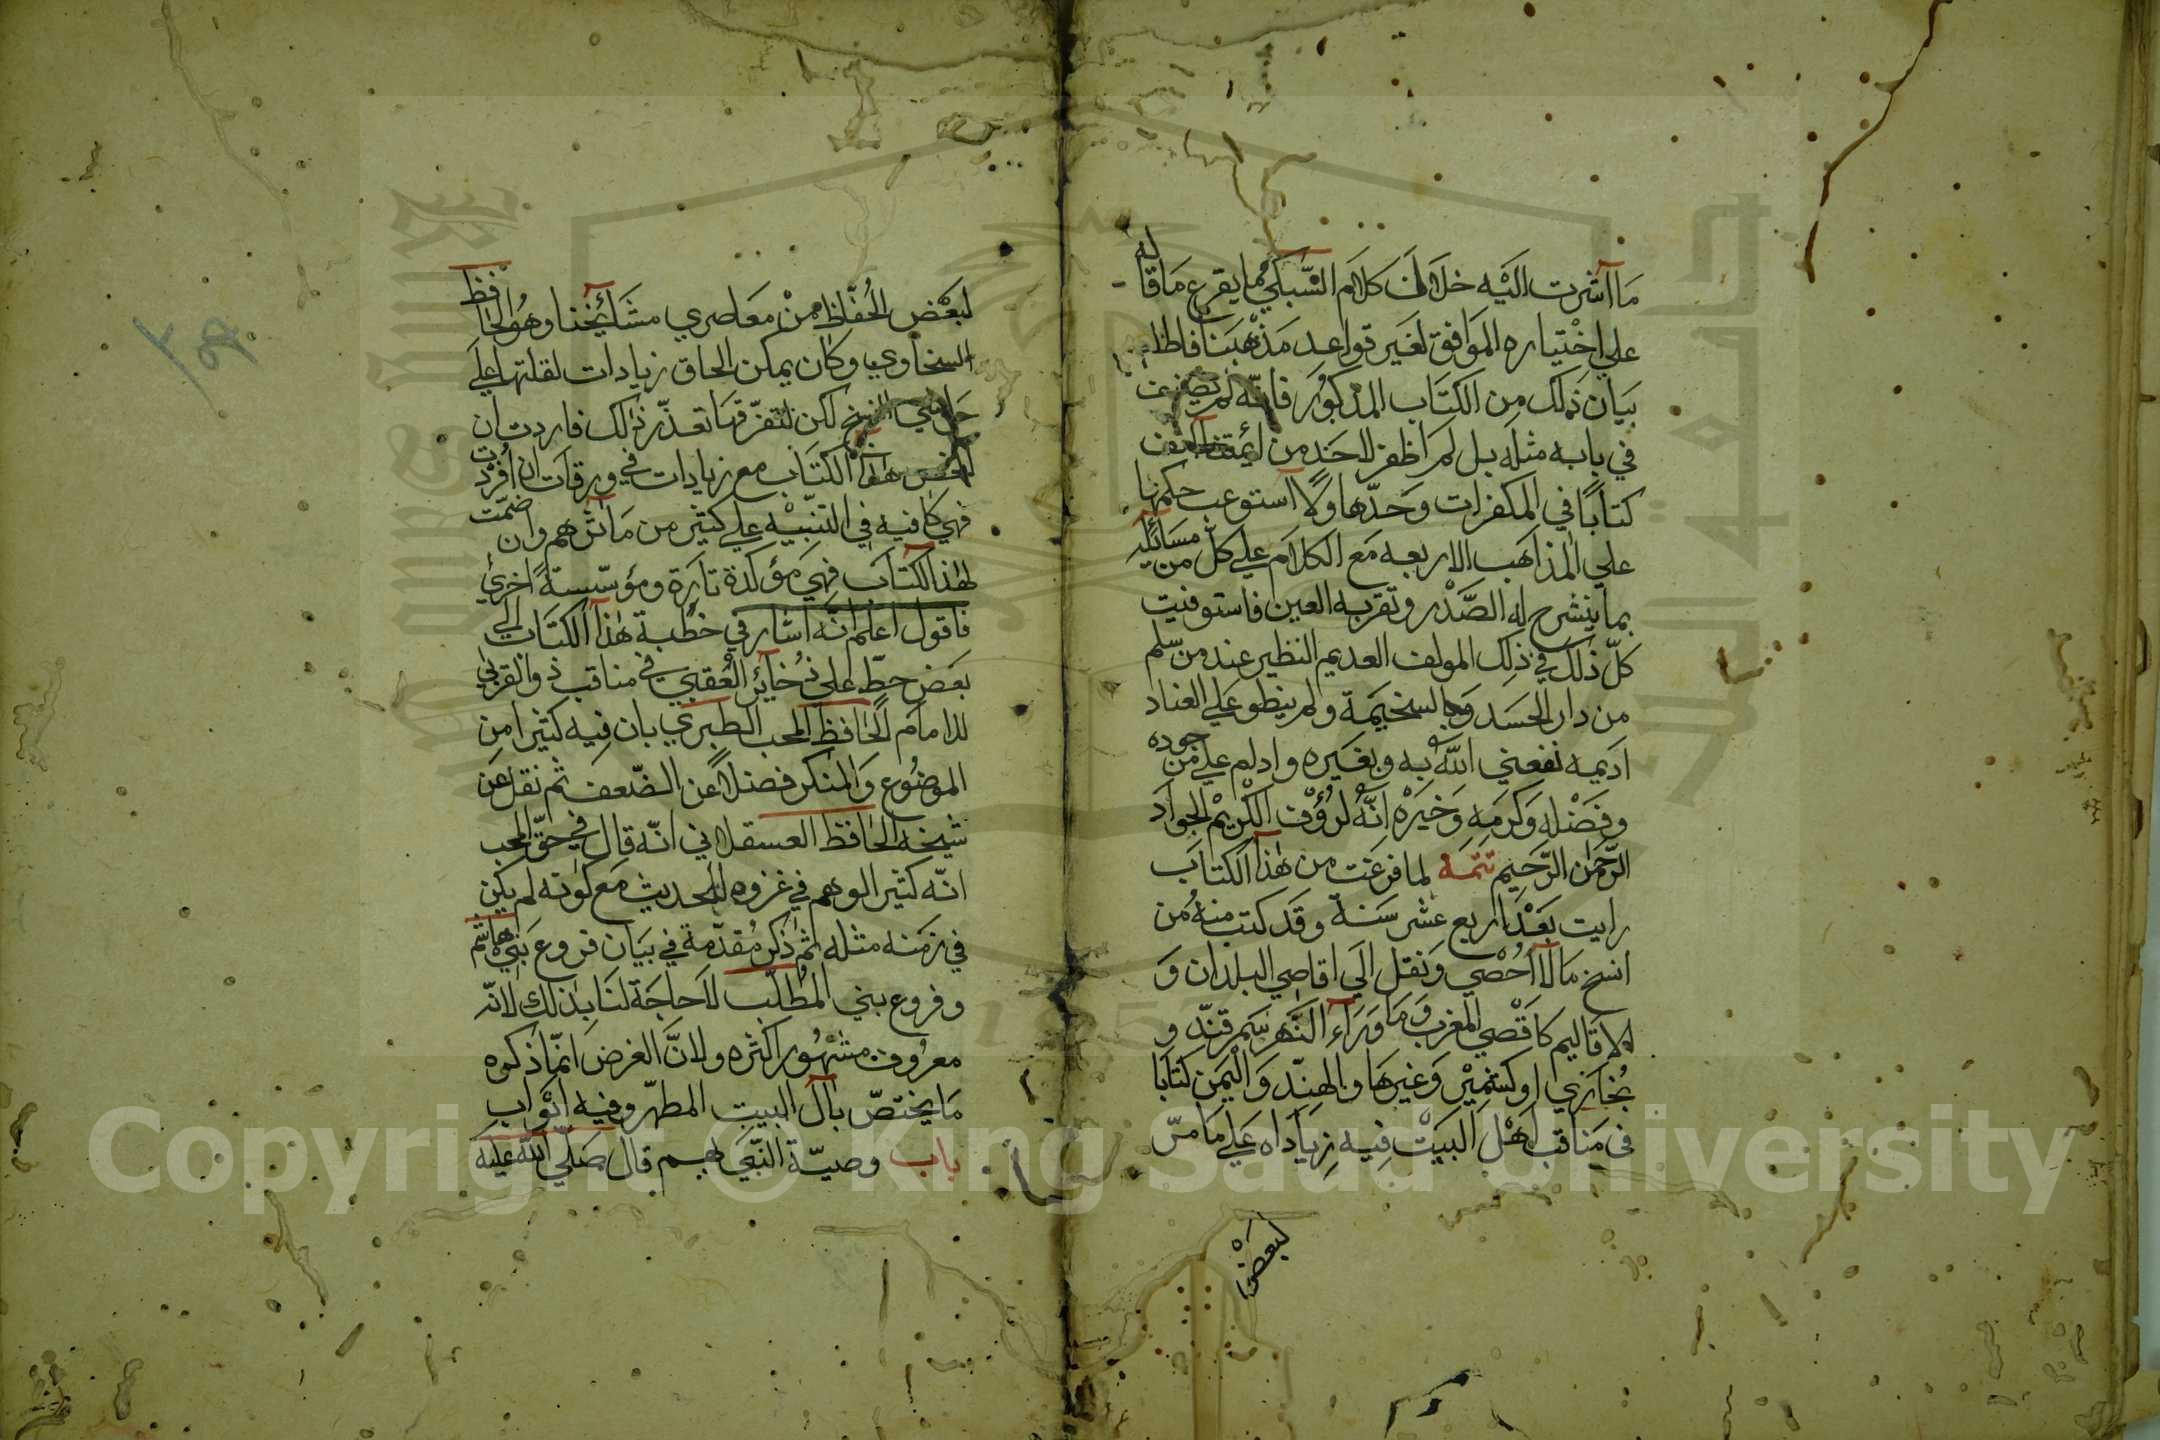 ما اشرت اليه خلافا لكلام السبكي مما يفرع ما قاله
علي اختياره الموافق لغير قواعد مذهبنا فاطلب
بيان ذلك من الكتاب المذكور فانه لم يصنف
في بابه مثله بل لم اظفر لاحد من ائمتنا الف
كتابا في المكفرات وحدها ولا استوعب حكمها
علي المذاهب الاربعه مع الكلام علي كل من مسائله
بما ينشرح له الصدر وتقر به العين فاستوفيت
كل ذلك في ذلك المولف العديم النظير عند من سلم
من داء الحسد والسخيمة ولم ينطو علي العناد
اديمه نفعني الله به وبغيره وادام علي من جوده
وفضله وكرمه وخيره انه لرؤف الكريم الجواد
الرحمن الرحيم تتمه لما فرغت من هذا الكتاب
رايت بعد اربع عشر سنة وقد كتب منه من
انسخ مالا احصي ونقل الي اقاصي البلدان و
الاقاليم كاقصي المغرب وما وراء النهر سمرقند و
بخارى وكشمير وغيرها والهند واليمن كتابا
في مناقب اهل البيت فيه زياداه علي ما مر
لبعض
لبعض الحفاظ من معاصري مشائخنا وهو الحافظ
السخاوي وكان يمكن الحاق زيادات لقلتها علي
حواشي النسخ لكن لتفرقها تعذر ذلك فاردت ان
الخص هذا الكتاب مع زيادات في ورقات ان افردت
فهي كافيه في التنبيه علي كثير من مآثرهم وان ضمت
لهذا الكتاب فهي مؤكدة تارة ومؤسسة اخرى
فاقول اعلم انه اشار في خطبة هذا الكتاب الي
بعض حط علي ذخائر العقبي في مناقب ذوالقربي
للامام الحافظ المحب الطبري بان فيه كثيرا من
الموضوع والمنكر فضلا عن الضعف ثم نقل عن
شيخه الحافظ العسقلاني انه قال في حق المحب
انه كثير الوهم في غزوه للحديث مع كونه لم يكن
في زمنه مثله ثم ذكر مقدمة في بيان فروع بني هاشم
وفروع بني المطلب لا حاجة لنا بذلك لانه
معروف مشهور اكثره ولان الغرض انما ذكره
ما يختص بآل البيت المطهر وفيه ابواب
باب وصية النبي بهم قال صلي الله عليه
Copyright © King Saud University